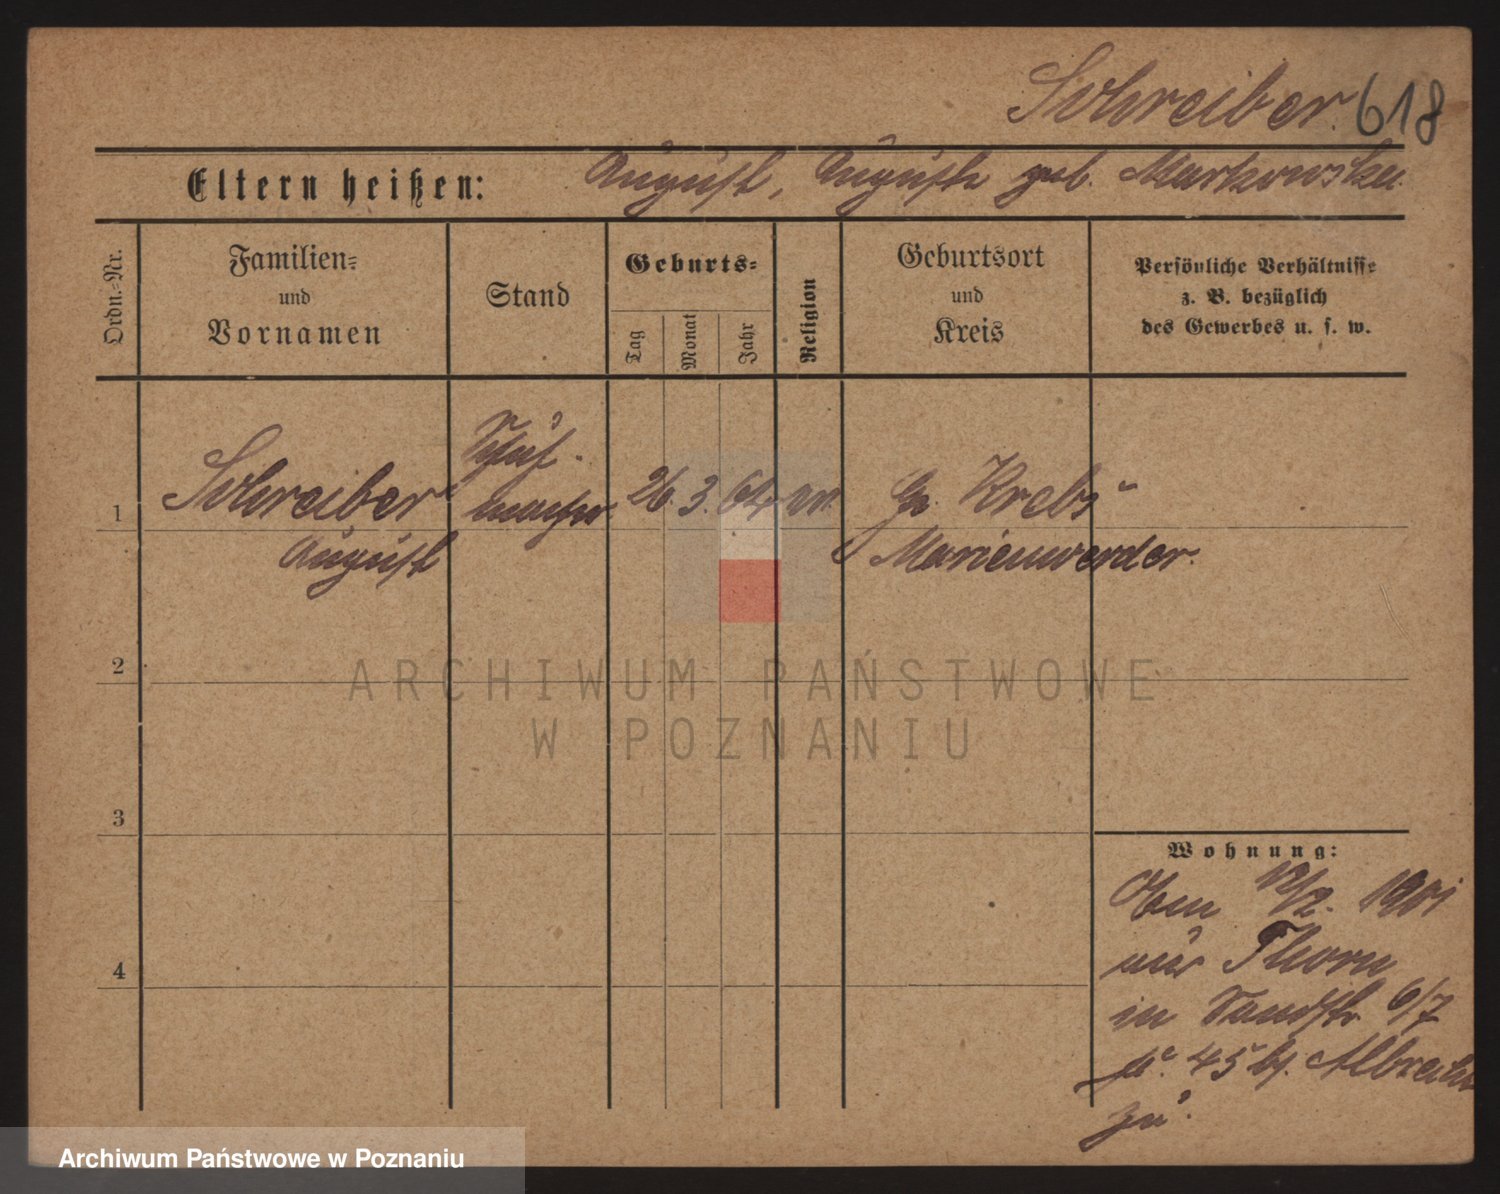 Schreiber. 618
Eltern heißen: August, Auguste geb. Markowska.
Ordn.-Nr.
Familien-
und
Vornamen
Stand
Geburts-
Tag
Monat
Jahr
Religion
Geburtsort
und
Kreis
Persönliche Verhältnisse
z. B. bezüglich
des Gewerbes u. s. w.
1
Schreiber
August
Schuh-
macher
26. 3. 64
Gr. Krebs
Marienwerder.
2
ARCHIWUM PAŃSTWOWE
W POZNANIU
3
Wohnung:
12/2. 1901
Thorn
in Sandstr 6/7
45 bj. Albrecht
zu.
4
Archiwum Państwowe w Poznaniu